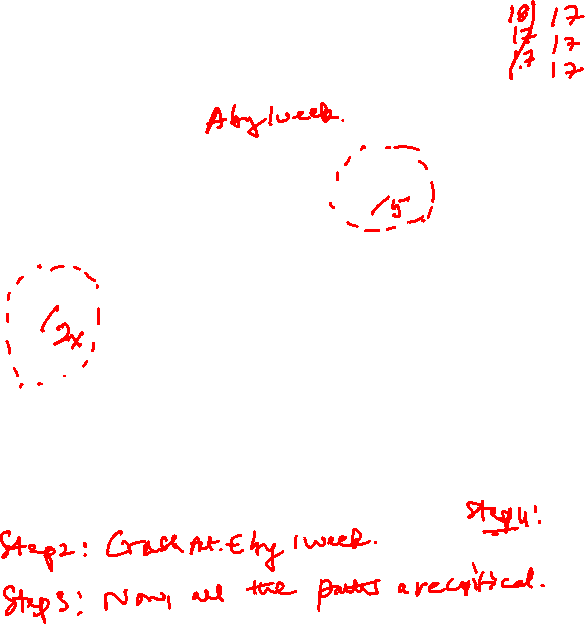 18 17
17 17
17 17
A by 1 week.
/5
/2x
Step 4:
Step 2: Crash Act. E by 1 week.
Step 3: Now, all the paths are critical.